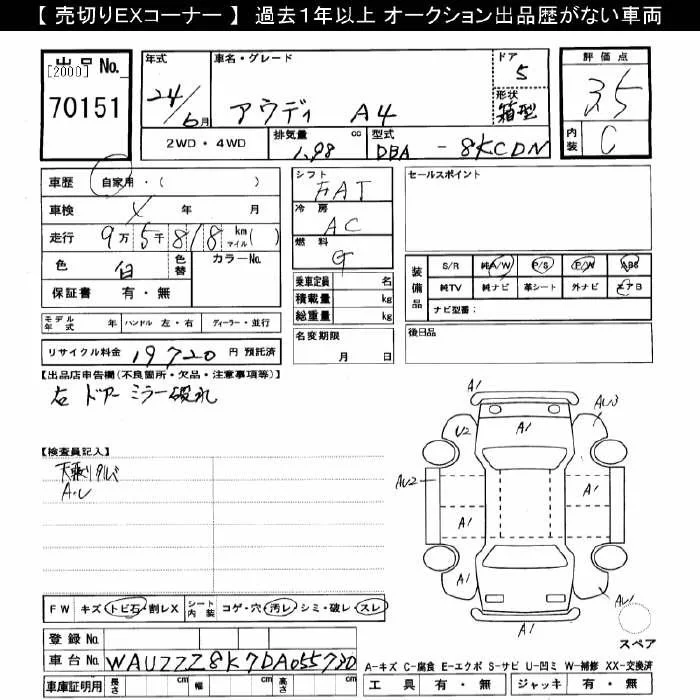 【 売切りEXコーナー 】 過去1年以上 オークション出品歴がない車両
出品 No.
[2000]
70151
年式
24/6月
車名・グレード
アウディ A4
ドア
5
形状
箱型
評価点
3.5
内装
C
2WD ・ 4WD
排気量 1.98 cc
型式 DBA - 8KCDN
車歴 自家用・( )
車検 年 月
走行 9万5千818 km マイル( )
色 白 色替 カラーNo.
保証書 有・無
シフト
FAT
冷房
AC
燃料
G
乗車定員 名
積載量 kg
総重量 kg
名変期限
月 日
セールスポイント
装備品
S/R 純A/W P/S P/W ABS
純TV 純ナビ 革シート 外ナビ エアB
ナビ型番:
後日品
モデル年式 年 ハンドル 左・右 ディーラー・並行
リサイクル料金 19720 円 預託済
【出品店申告欄(不良箇所・欠品・注意事項等)】
右 ドアーミラー破れ
【検査員記入】
A・U
A1
U2
A1
AU3
A1
AU2
A1
A1
A1
A1
AU1
スペア
FW キズ・トビ石・割レX シート内装 コゲ・穴・汚レ・シミ・破レ・スレ
登録 No.
車台 No. WAUZZZ8K7DA055720
車庫証明用 長さ cm 幅 cm 高さ cm
A-キズ C-腐食 E-エクボ S-サビ U-凹ミ W-補修 XX-交換済
工具 有・無 ジャッキ 有・無